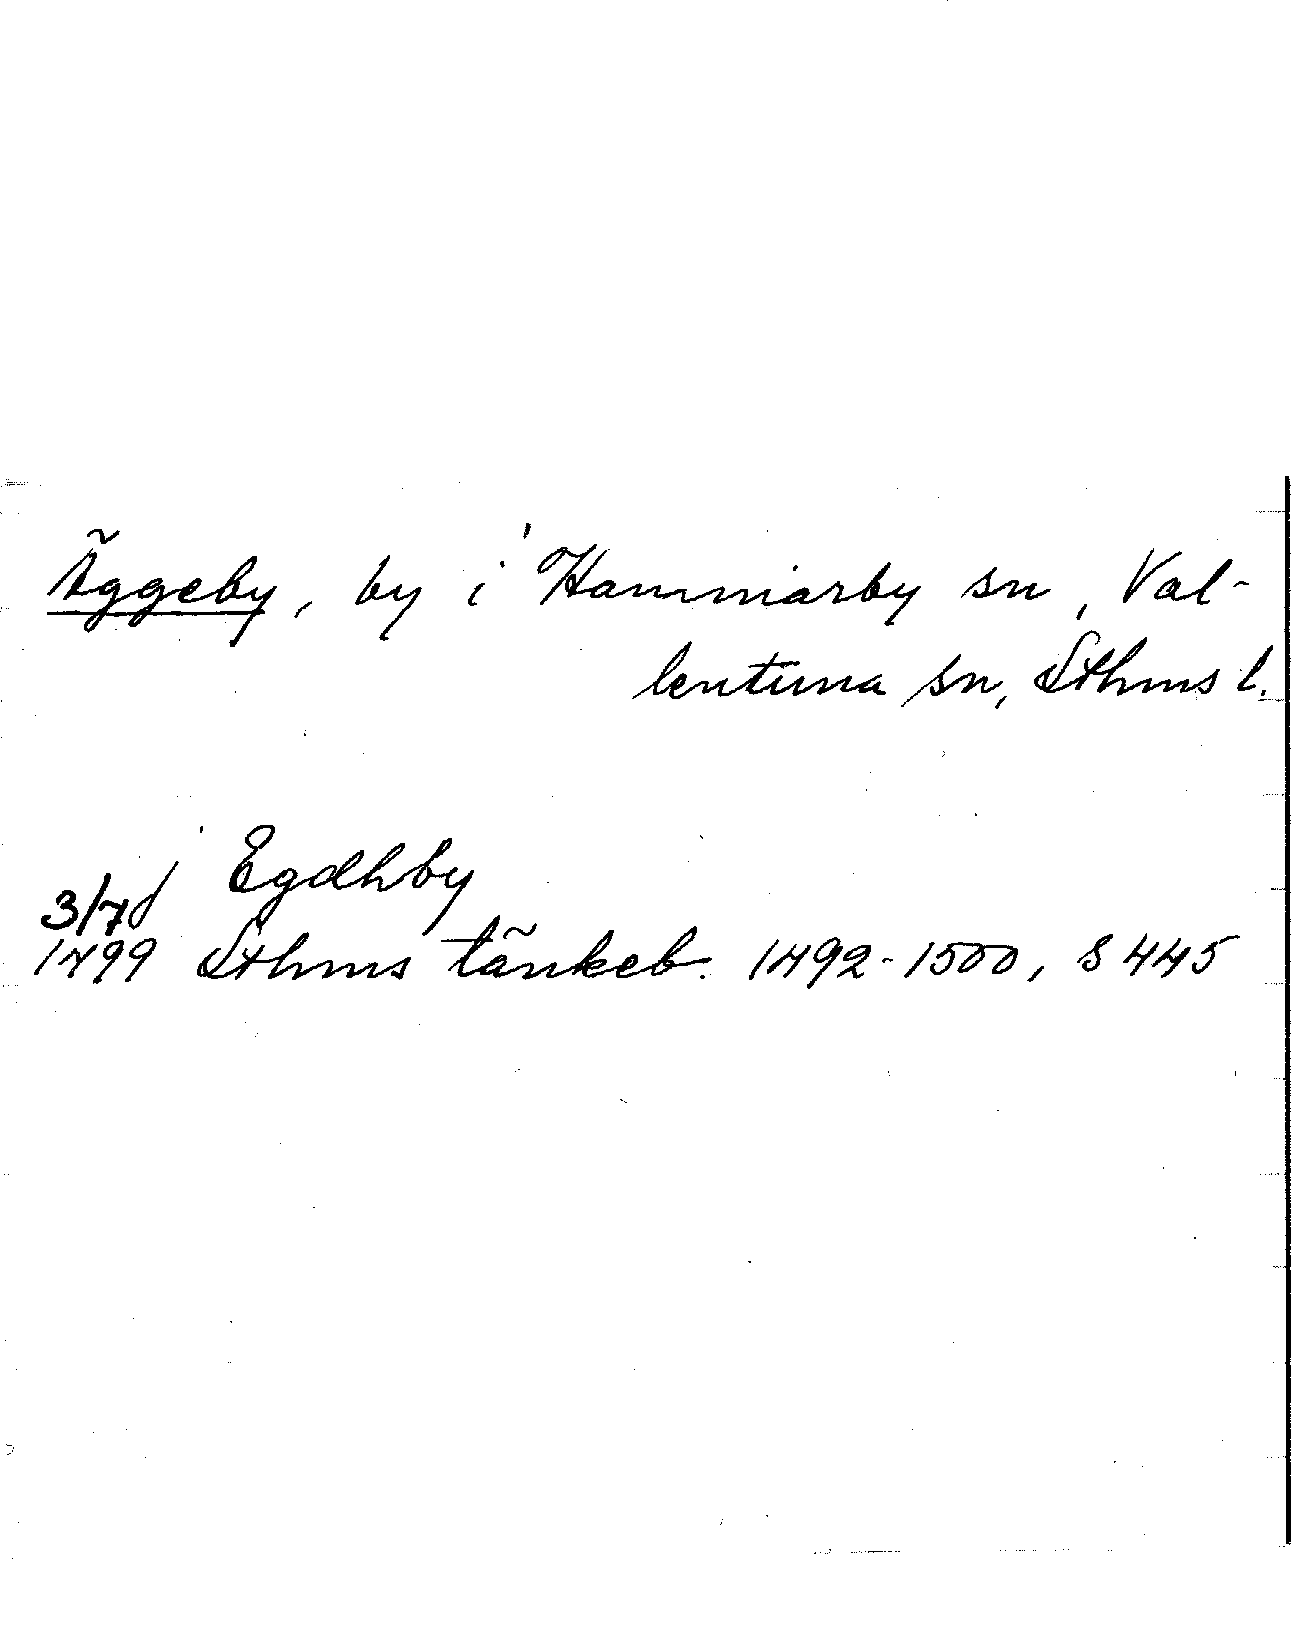 Äggeby, by i Hammarby sn, Val-
lentuna sn, Sthms l.
Egdhby
3/7
1499 Sthms tänkeb. 1492-1500, s 445